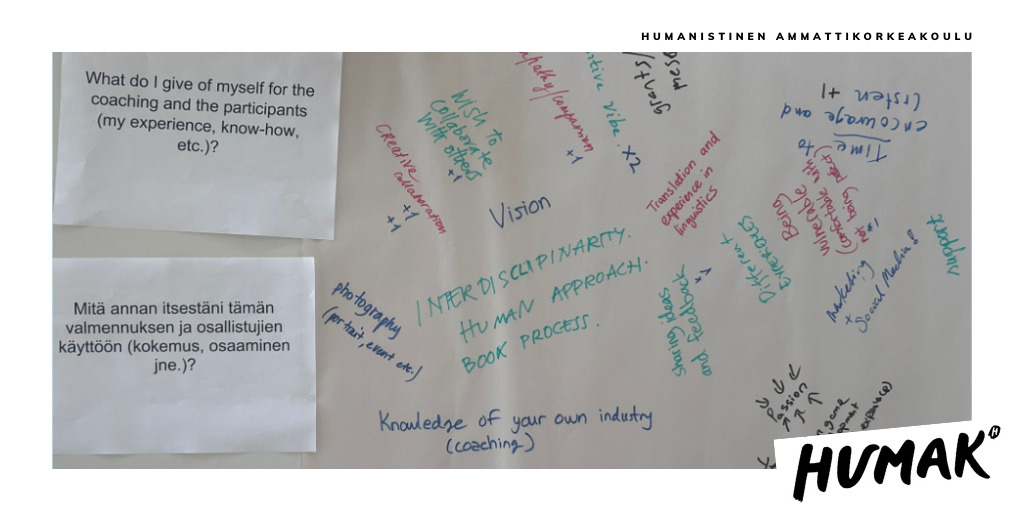 HUMANISTINEN AMMATTIKORKEAKOULU
What do I give of myself for the
coaching and the participants
(my experience, know-how,
etc.)?
Mitä annan itsestäni tämän
valmennuksen ja osallistujien
käyttöön (kokemus, osaaminen
jne.)?
Wish to
collaborate
with others
+1
creative
collaboration
+1
+1
/compassion
+1
vibe. x2
grants/
Vision
Translation and
experience in
linguistics
Time to
encourage and
listen +1
Being
vulnerable
(comfortable with
not being perfect)
+1
Different
support
marketing
+ Social Media!
INTERDISCLIPINARITY.
HUMAN APPROACH.
BOOK PROCESS.
sharing ideas
and feedback
photography
(portrait, event, etc.)
Knowledge of your own industry
(coaching)
passion
game
HUMAK
H